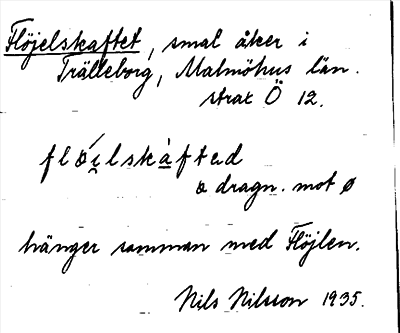 Flöjelskaftet, smal åker i
Trälleborg, Malmöhus län.
strax Ö 12.
fløi̯lskàftəd
ø dragn. mot ø
hänger samman med Flöjlen.
Nils Nilsson 1935.